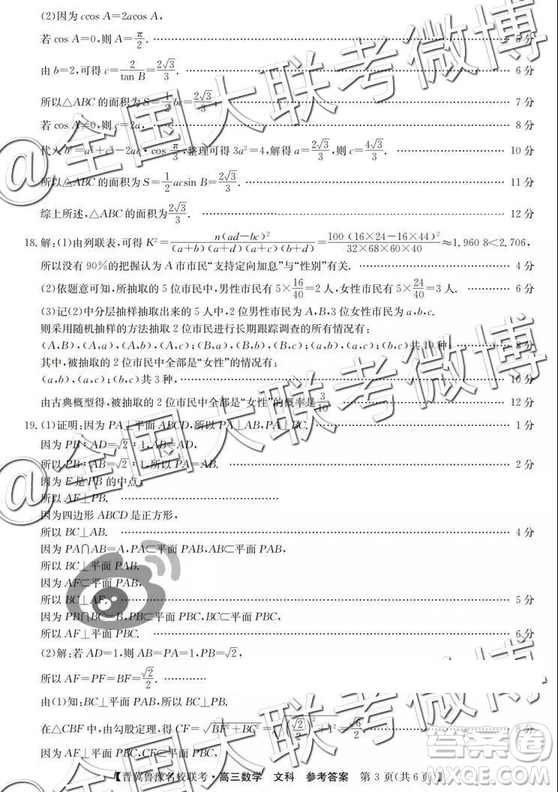 (2)因为 ccos A=2acos A,
若 cos A=0,则 A=π/2. 5 分
由 b=2,可得 c=2/tan B=2√3/3. 6 分
所以△ABC 的面积为 S=1/2 bc=2√3/3. 7 分
若 cos A≠0,则 c=2a, 8 分
代入 b²=a²+c²-2ac·cos π/3,整理可得 3a²=4,解得 a=2√3/3,则 c=4√3/3. 10 分
所以△ABC 的面积为 S=1/2 acsin B=2√3/3. 11 分
综上所述,△ABC 的面积为 2√3/3. 12 分
18.解:(1)由列联表,可得 K²=n(ad-bc)²/(a+b)(a+d)(a+c)(b+d)=100(16×24-16×44)²/32×68×60×40≈1.960 8<2.706,
所以没有 90%的把握认为 A 市市民"支持定向加息"与"性别"有关. 4 分
(2)依题意可知,所抽取的 5 位市民中,男性市民有 5×16/40=2 人,女性市民有 5×24/40=3 人. 6 分
(3)记(2)中分层抽样抽取出来的 5 人中,2 位男性市民为 A,B,3 位女性市民为 a,b,c.
则采用随机抽样的方法抽取 2 位市民进行长期跟踪调查的所有情况有:
(A,B),(A,a),(A,b),(A,c),(B,a),(B,b),(B,c),(a,b),(a,c),(b,c)共 10 种, 8 分
其中,被抽取的 2 位市民中全部是"女性"的情况有:
(a,b),(a,c),(b,c)共 3 种, 10 分
由古典概型得,被抽取的 2 位市民中全部是"女性"的概率是 3/10. 12 分
19.(1)证明:因为 PA⊥平面 ABCD,所以 PA⊥AB,PA⊥BC. 1 分
因为 PB∶AD=√2∶1,
所以 PB∶AB=√2∶1,所以 PA=AB. 2 分
因为 E是 PB 的中点,
所以 AF⊥PB.
因为四边形 ABCD 是正方形,
所以 BC⊥AB. 4 分
因为 PA∩AB=A,PA⊂平面 PAB,AB⊂平面 PAB,
所以 BC⊥平面 PAB.
因为 AF⊂平面 PAB,
所以 BC⊥AF. 5 分
因为 PB∩BC=B,PB⊂平面 PBC,BC⊂平面 PBC,
所以 AF⊥平面 PBC. 6 分
(2)解:若 AD=1,则 AB=PA=1,PB=√2,
所以 AF=PF=BF=√2/2.
由(1)知:BC⊥平面 PAB,所以 BC⊥PB.
在△CBF 中,由勾股定理,得 CF=√(BF²+BC²)=√((√2/2)²+1²)=√6/2. 8 分
因为 AF⊥平面 PBC,CF⊂平面 PBC,
【晋冀鲁豫名校联考·高三数学 文科 参考答案 第 3 页(共 6 页)】
@全国大联考微博
@全国大联考微博
答案圈
MXQE.COM